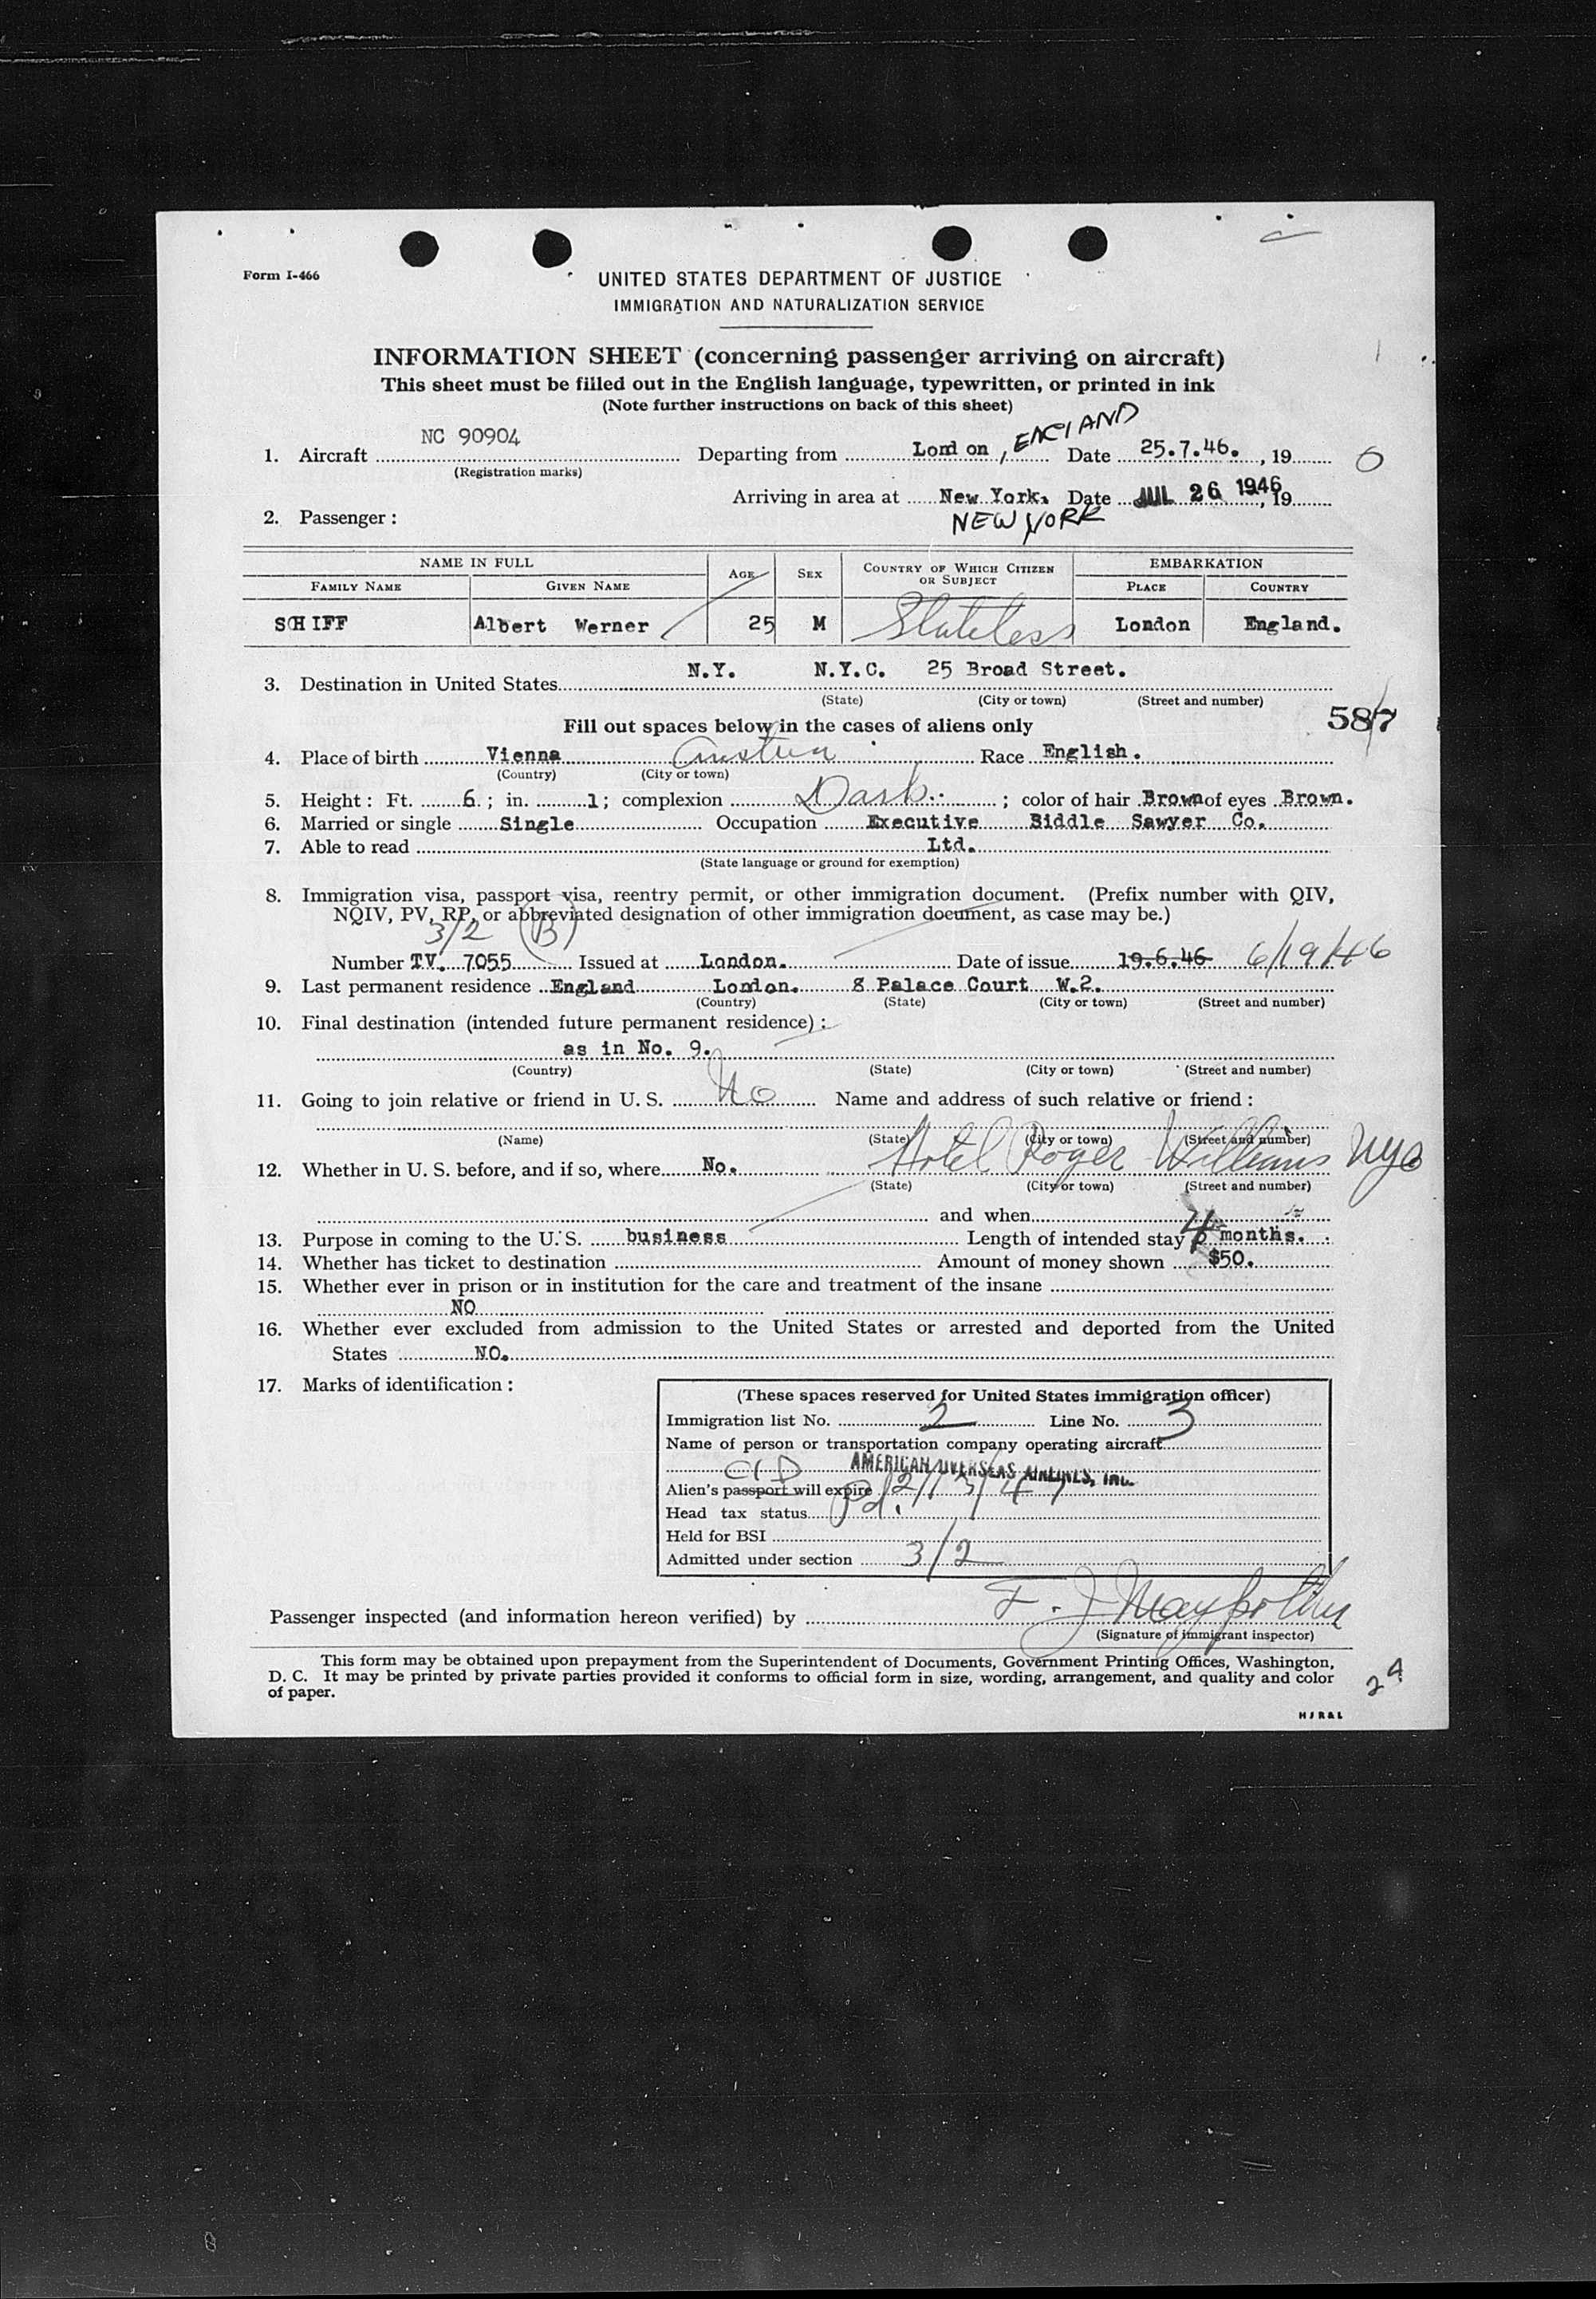 Form I-466
UNITED STATES DEPARTMENT OF JUSTICE
IMMIGRATION AND NATURALIZATION SERVICE
INFORMATION SHEET (concerning passenger arriving on aircraft)
This sheet must be filled out in the English language, typewritten, or printed in ink
(Note further instructions on back of this sheet)
1. Aircraft NC 90904 Departing from London, ENGLAND Date 25.7.46. , 19
(Registration marks)
Arriving in area at New York. Date JUL 26 1946, 19
NEW YORK
2. Passenger:
NAME IN FULL AGE SEX COUNTRY OF WHICH CITIZEN OR SUBJECT EMBARKATION
FAMILY NAME GIVEN NAME PLACE COUNTRY
SCHIFF Albert Werner 25 M Stateless London England.
3. Destination in United States N.Y. N.Y.C. 25 Broad Street.
(State) (City or town) (Street and number)
Fill out spaces below in the cases of aliens only
587
4. Place of birth Vienna Austria Race English.
(Country) (City or town)
5. Height: Ft. 6 ; in. 1; complexion Dark ; color of hair Brown of eyes Brown.
6. Married or single Single Occupation Executive Biddle Sawyer Co.
7. Able to read Ltd.
(State language or ground for exemption)
8. Immigration visa, passport visa, reentry permit, or other immigration document. (Prefix number with QIV,
NQIV, PV, RP, or abbreviated designation of other immigration document, as case may be.)
3/2 (B)
Number TV. 7055 Issued at London. Date of issue 19.6.46 6/19/46
9. Last permanent residence England London. 8 Palace Court W.2.
(Country) (State) (City or town) (Street and number)
10. Final destination (intended future permanent residence):
as in No. 9.
(Country) (State) (City or town) (Street and number)
11. Going to join relative or friend in U. S. No Name and address of such relative or friend:
(Name) (State) (City or town) (Street and number)
12. Whether in U. S. before, and if so, where No. Hotel Roger Williams NYC
(State) (City or town) (Street and number)
and when
13. Purpose in coming to the U. S. business Length of intended stay 4 months.
14. Whether has ticket to destination Amount of money shown $50.
15. Whether ever in prison or in institution for the care and treatment of the insane
NO
16. Whether ever excluded from admission to the United States or arrested and deported from the United
States NO.
17. Marks of identification:
(These spaces reserved for United States immigration officer)
Immigration list No. 2 Line No. 3
Name of person or transportation company operating aircraft
AMERICAN OVERSEAS AIRLINES, INC.
CID
Alien's passport will expire 12/13/47
Head tax status Pd.
Held for BSI
Admitted under section 3/2
Passenger inspected (and information hereon verified) by F. J.
(Signature of immigrant inspector)
This form may be obtained upon prepayment from the Superintendent of Documents, Government Printing Offices, Washington,
D. C. It may be printed by private parties provided it conforms to official form in size, wording, arrangement, and quality and color
of paper.
24
HJR&L